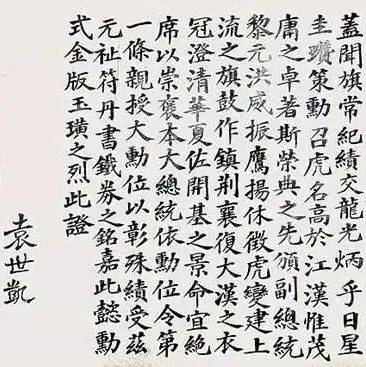 蓋聞旗常紀績交龍光炳乎日星
圭瓚策勳召虎名高於江漢惟茂
庸之卓著斯榮典之先頒副總統
黎元洪威振鷹揚休徵虎變建上
流之旗鼓作鎮荆襄復大漢之衣
冠澄清華夏佐開基之景命宜絕
席以崇褒本大總統依勳位令第
一條親授大勳位以彰殊績受茲
元祉符丹書鐵券之銘嘉此懿勳
式金版玉璜之烈此證
袁世凱